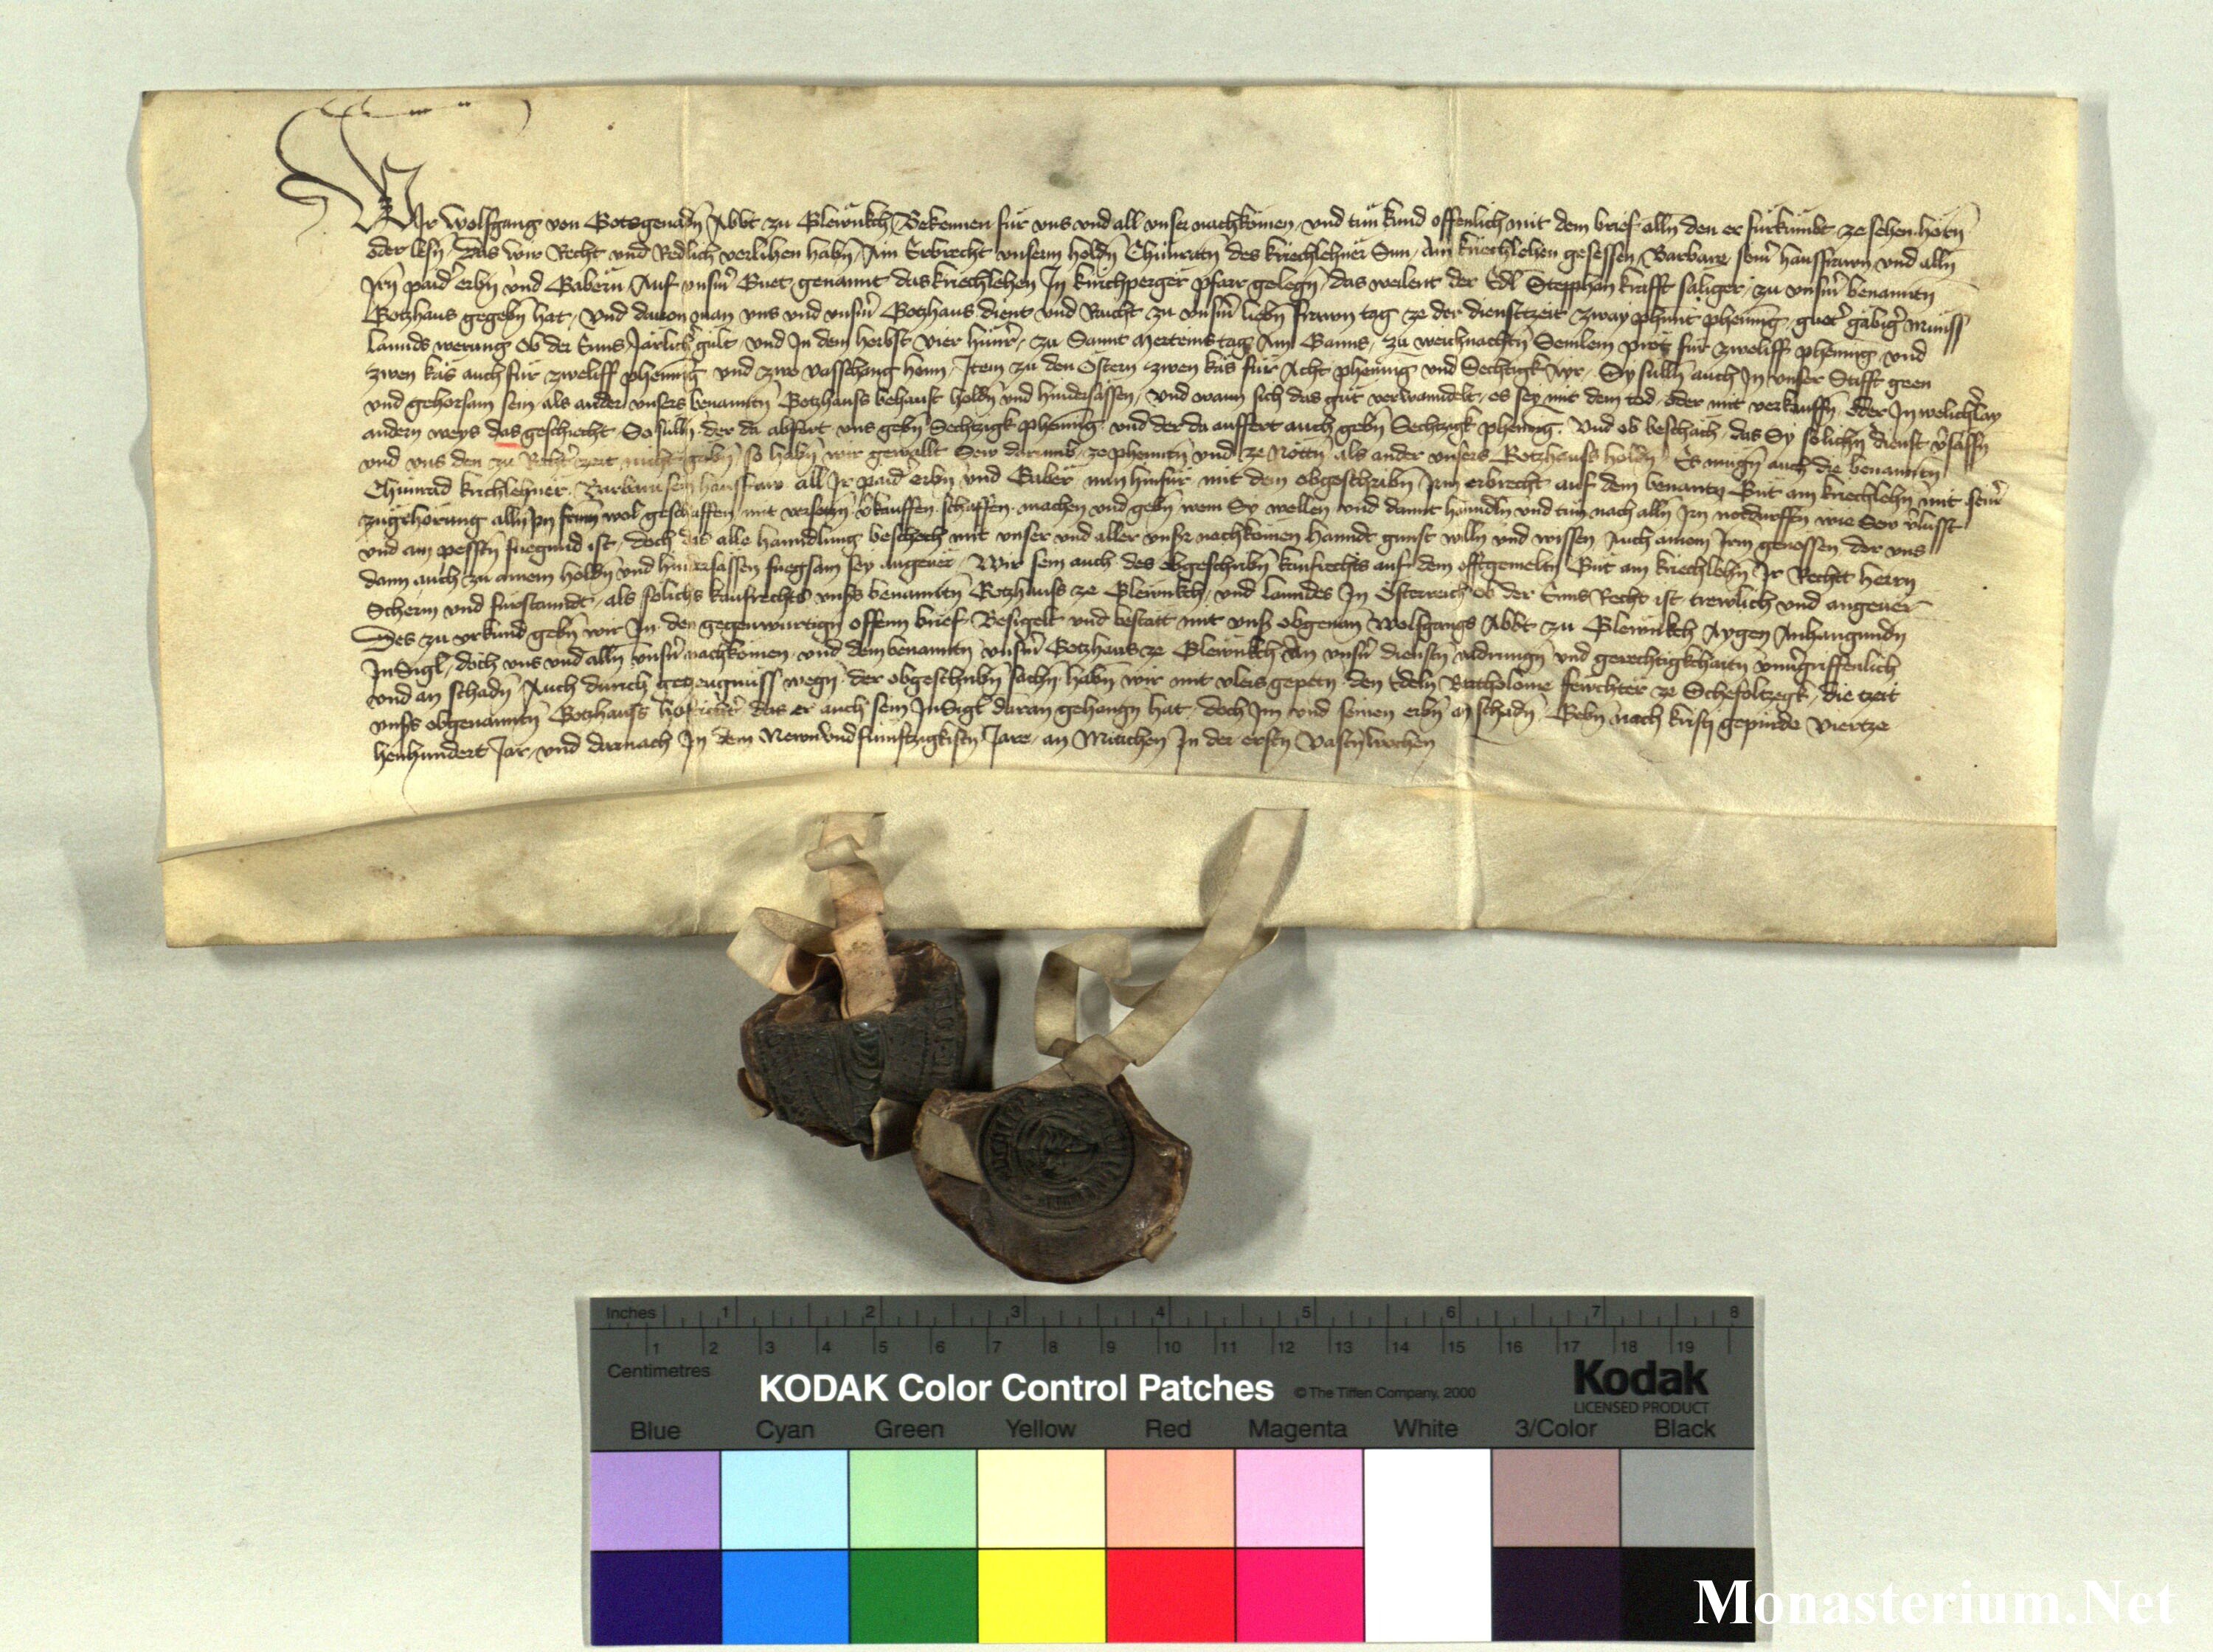 Wir Wolfgang von Gotsgenadn̄ Abbt zu Glewnikch Bekennen für vns vnd all vnser nachkömen vnd tün kund offenlich mit dem brief alln̄ den er fürkümbt ze sehen hörn̄
oder lesn̄ Das wir Recht vnd Redlich verlihen habn̄ Ain Erbrecht vnserm holdn̄ Chünratn̄ des kriechlehner Sun Am kriechlehen gesessen Barbare seīr hausfrawn vnd alln̄
Irn̄ paid erbn̄ vnd Gabern Auf vnsm̄ Guet genannt das kriechlehen In kirchperger pfarr gelegn̄ das weilent der Edl Stepphan krafft säliger zu vnsm̄ benannten
Gotzhaus gegebn̄ hat vnd dauon man vns vnd vnsm̄ Gotzhaus dient vnd Raicht zu vnsr̄ liebn̄ frawn tag ze der dienstzeit zway phunt phenning guet gäbig Münss
Lannds werung ob der Enns Järlich gült vnd In dem herbst vier hüner zu Sannt Merteinstag Ain Ganns zu weichnachtn̄ Semlein prot für zweliff phenning vnd
zwen käs auch für zweliff phenning vnd zwo vasschang henn Item zu den Ostern zwen käs für Acht phenning vnd Sechtzigk Ayr Sy sulln̄ auch In vnser Stifft geen
vnd gehorsam sein als ander vnsers benanntn̄ Gotzhauss behaust holdn̄ vnd hindersässen vnd wann sich das güt verwanndelt es sey mit dem tod oder mit verkauffn̄ oder In welichlay
andern weys das geschiecht So sulln̄ der da abfert vns gebn̄ Sechtzigk phenning vnd der da auffert auch gebn̄ Sechtzigk phenning Vnd ob beschäch das Sy solichn̄ dienst v̄sässn̄
vnd vns den zu Recht zeit nicht gäbn̄ so habn̄ wir gewallt Sew darumb ze phenntn̄ vnd ze nöttn̄ als ander vnsers Gotzhauss holdn̄ Es mugn̄ auch die benanntn̄
Chünrad kriechlehner Barbara sein hausfraw all Ir paid erbn̄ vnd Gaber nun hinfür mit dem obgeschribn̄ Irm erbrecht auf dem benantn̄ Güt am kriechlehn̄ mit seīr
zugehörung alln̄ Irn̄ frum̄ wol geschaffen mit versetzn̄ v̄kauffen schaffen machen vnd gebn̄ wem Sy wellen vnd damit hanndln̄ vnd tün nach alln̄ Irn̄ notdurfftn̄ wie Sew v̄lusst
vnd am pesstn̄ fuegund ist doch das alle hanndlung beschech mit vnser vnd aller vnsr̄ nachkömen hanndt gunst willn̄ vnd wissen Auch ainem Irm genossen der vns
dann auch zu ainem holdn̄ vnd hindersässen fuegsam sey angeuer Wir sein auch des obgeschribn̄ kaufrechts auf dem offtgemeltn̄ Güt am kriechlehn̄ Ir Recht herrn̄
Scherm vnd fürstanndt als solichs kaufrechts vnsrs benanntn̄ Gotzhauss ze Glewnikch vnd Lanndes In Österreich ob der Enns Recht ist trewlich vnd angeuer
Des zu vrkund gebn̄ wir In den gegenwürtign̄ offenn brief Besigelt vnd bestätt mit vnsr̄ obgenan̄ Wolfgangs Abbt zu Glewnikch Aygen Anhangundn̄
InSigl doch vns vnd alln̄ vnsr̄n nachkömen vnd dem benanntn̄ vnsm̄ Gotzhaus ze Glewnikch An vnsn̄ dienstn̄ vadrungn̄ vnd gerechtigkchaitn̄ vnu̇griffenlich
vnd an schadn̄ Auch durch getzeugnüss wegn̄ der obgeschribn̄ sachn̄ habn̄ wir mit vleis gepetn̄ den Edeln Bartholome fewchter ze Schefoltzegk die tzeit
vnsrs obgenanntn̄ Gotzhauss hofrichter das er auch sein InSigl daran gehangn̄ hat doch Im vnd seinen erbn̄ an schadn̄ Gebn̄ nach kristj gepürde Viertze
henhundert Jar vnd darnach In dem Newnvndfünftzigkistn̄ Jare an Mitichen In der erstn̄ Vastn̄wochen
Inches 1 2 3 4 5 6 7 8
1 2 3 4 5 6 7 8 9 10 11 12 13 14 15 16 17 18 19
Centimetres
KODAK Color Control Patches © The Tiffen Company, 2000
Kodak
LICENSED PRODUCT
Blue Cyan Green Yellow Red Magenta White 3/Color Black
Monasterium.Net